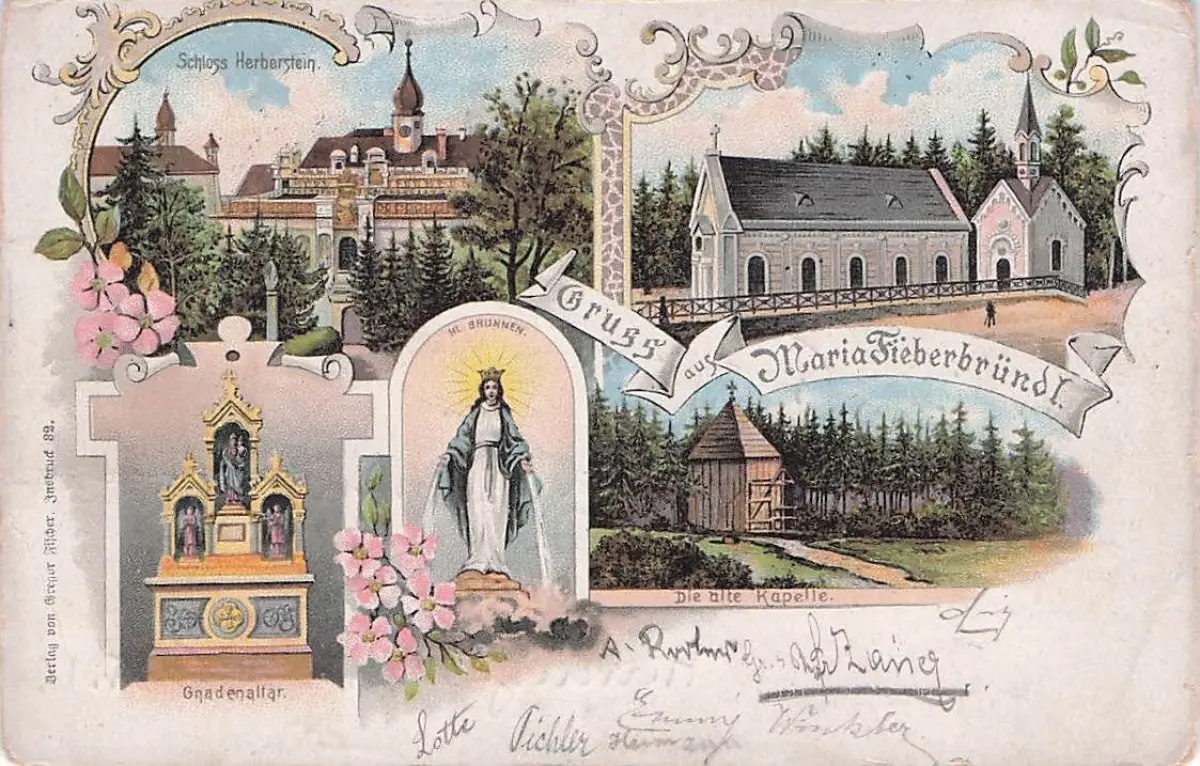 Schloss Herberstein.
Hl. BRUNNEN.
Gruss
aus
Maria Fieberbründl.
Die alte Kapelle.
Gnadenaltar.
Verlag von Gregor Fischer, Innsbruck 82.
A.
Lotte Pichler Emmy Winkler
Hermann